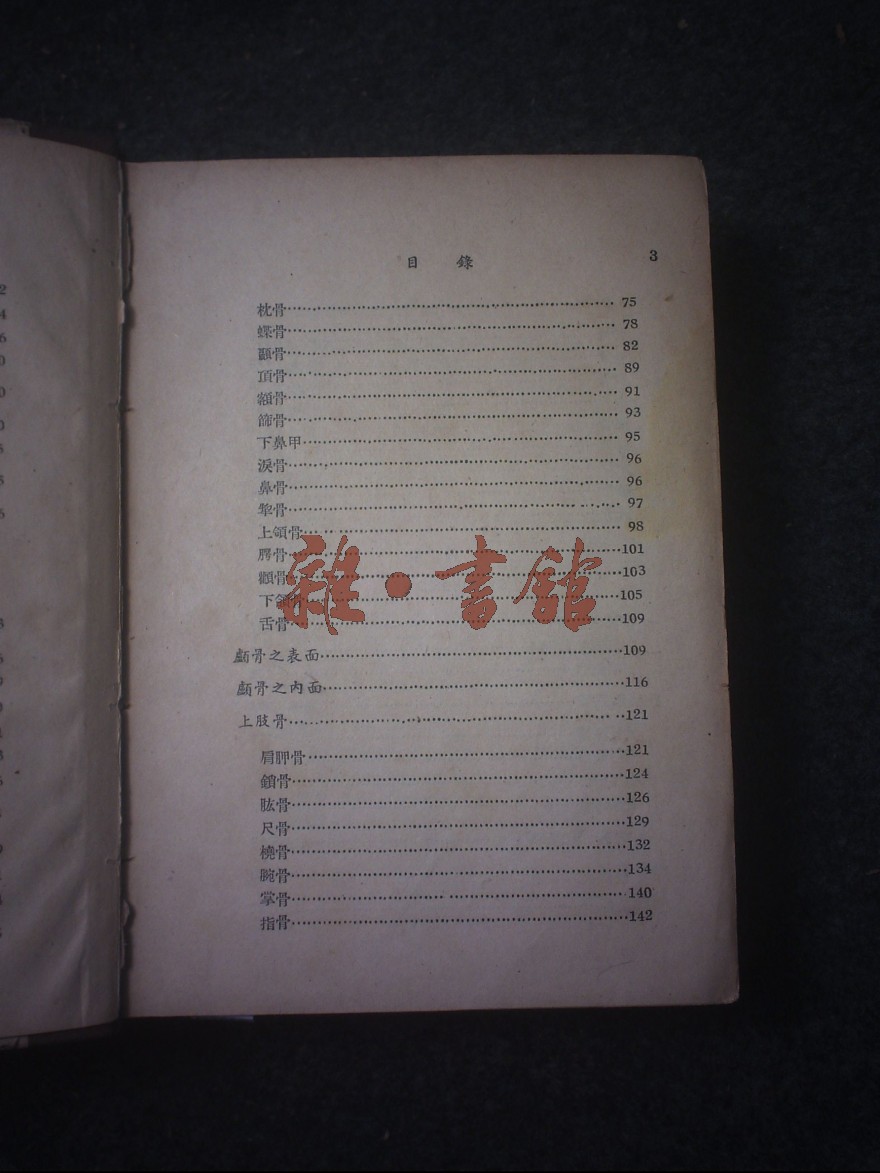 目 錄 3
枕骨 75
蝶骨 78
顳骨 82
頂骨 89
額骨 91
篩骨 93
下鼻甲 95
淚骨 96
鼻骨 96
犂骨 97
上頜骨 98
腭骨 101
顴骨 103
下頜骨 105
舌骨 109
顱骨之表面 109
顱骨之內面 116
上肢骨 121
肩胛骨 121
鎖骨 124
肱骨 126
尺骨 129
橈骨 132
腕骨 134
掌骨 140
指骨 142
雜·書館